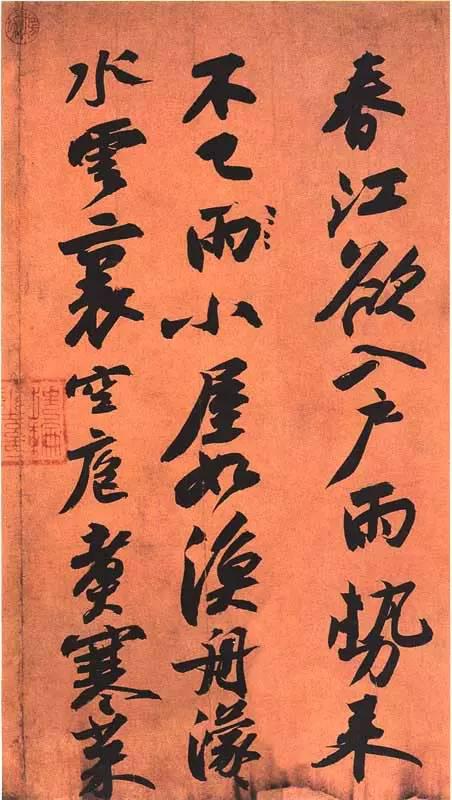 春江欲入户雨势来
不已雨小屋如渔舟濛
水雲裏空庖煮寒菜